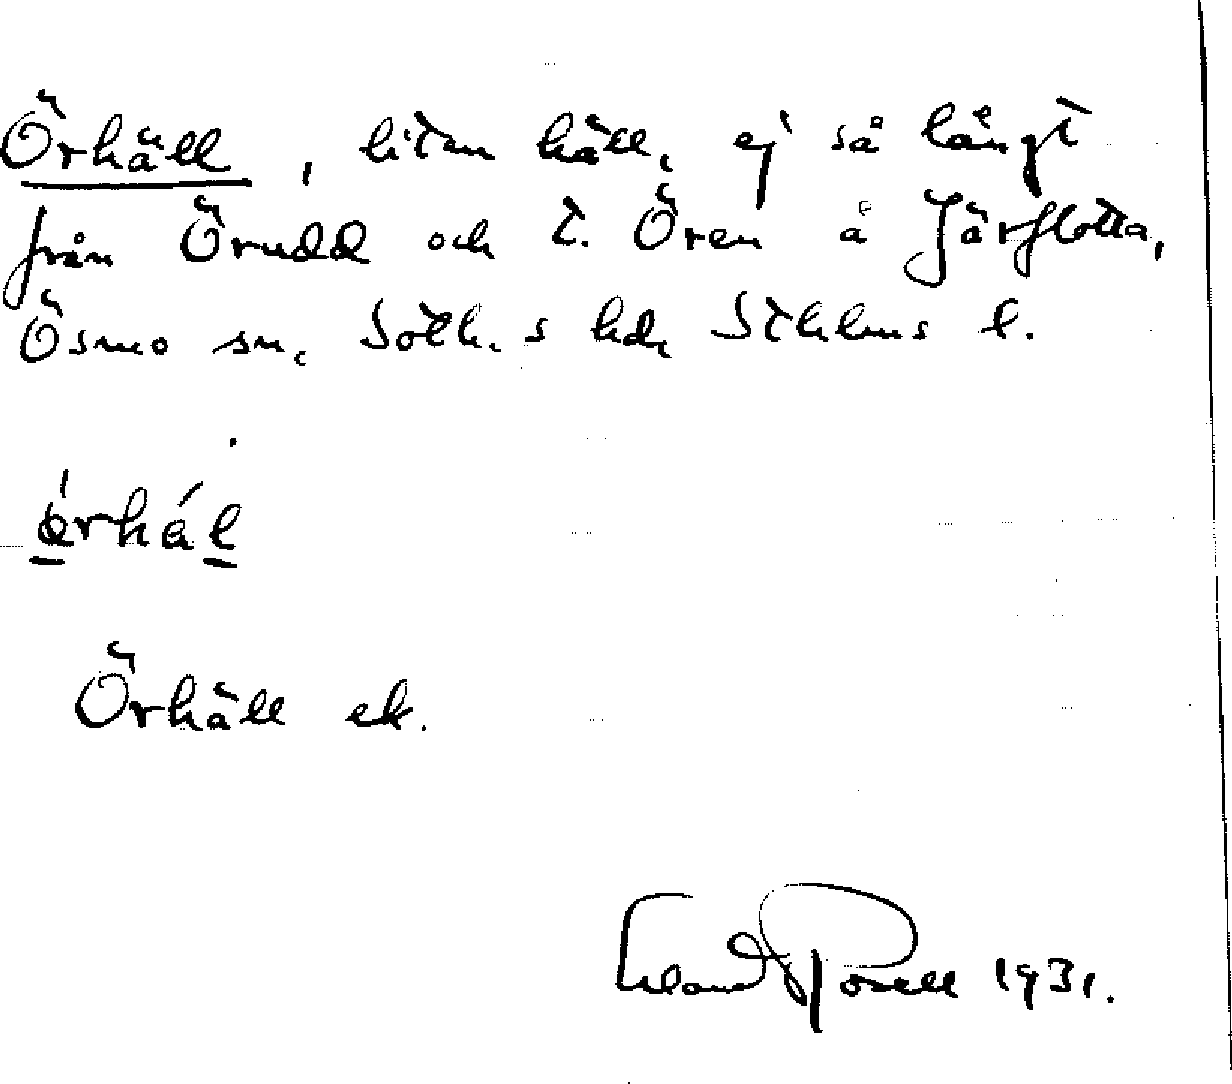 Örhäll, liten häll, ej så långt
från Örudd och t. Ören å Järflotta,
Ösmo sn, Soth.s hd, Sthlms l.
Örhäll ek.
Erland Rosell 1931.